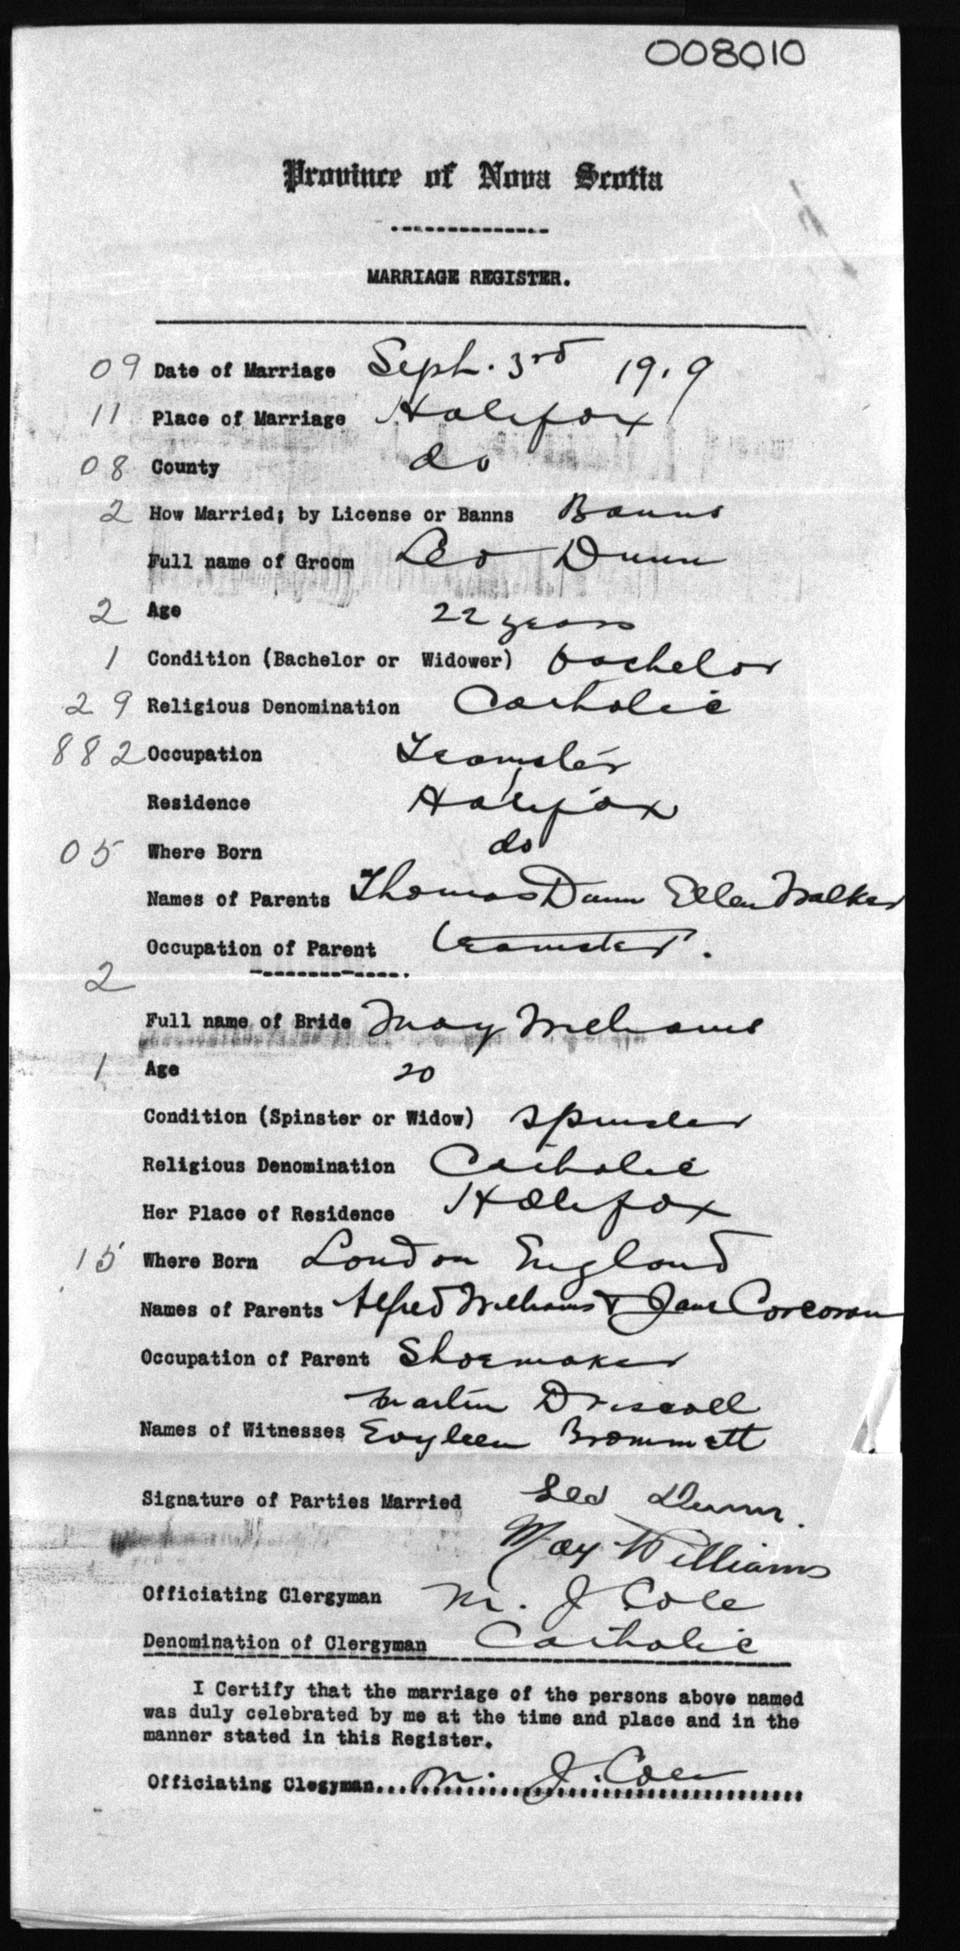 008010
Province of Nova Scotia
MARRIAGE REGISTER.
09 Date of Marriage Sept. 3rd 1919
11 Place of Marriage Halifax
08 County do
2 How Married; by License or Banns Banns
Full name of Groom Leo Dunn
2 Age 22 years
1 Condition (Bachelor or Widower) bachelor
29 Religious Denomination Catholic
882 Occupation Teamster
Residence Halifax
05 Where Born do
Names of Parents Thomas Dunn Ellen Walker
Occupation of Parent teamster.
2
Full name of Bride May Williams
1 Age 20
Condition (Spinster or Widow) spinster
Religious Denomination Catholic
Her Place of Residence Halifax
15 Where Born London England
Names of Parents Alfred Williams & Jane Corcoran
Occupation of Parent Shoemaker
Martin Driscoll
Names of Witnesses Eoyleen Brommett
Signature of Parties Married Leo Dunn.
May Williams
Officiating Clergyman M. J. Cole
Denomination of Clergyman Catholic
I Certify that the marriage of the persons above named
was duly celebrated by me at the time and place and in the
manner stated in this Register.
Officiating Clegyman M. J. Cole